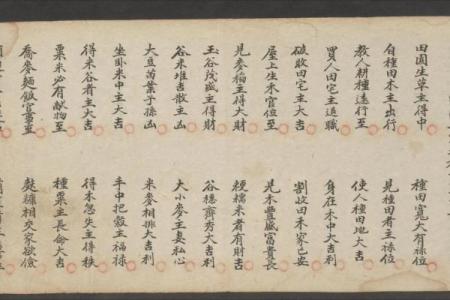 田園生草主得中
自種田禾主出行
教人耕種遠行至
買人田宅主遠職
破敗田宅主大吉
屋上生禾官位至
見麥稻主得大財
玉谷茂盛主得財
谷米堆吉散主凶
大豆苗葉子孫凶
坐卧米中主大吉
得米谷者主大吉
粟米必有献物至
蕎麥麵飯官事至
種田寬大有祿位
見種田者主祿位
使人種田地大吉
身在禾中大吉利
割收田禾家已安
見禾豐盛富貴長
粳糯米者有財吉
谷穗齊秀大吉利
大小麥主妻私心
米麥相拌大吉利
手中把穀主福祿
得禾忽失主得秩
種粟主長命大吉
麩糠相交家欲儉